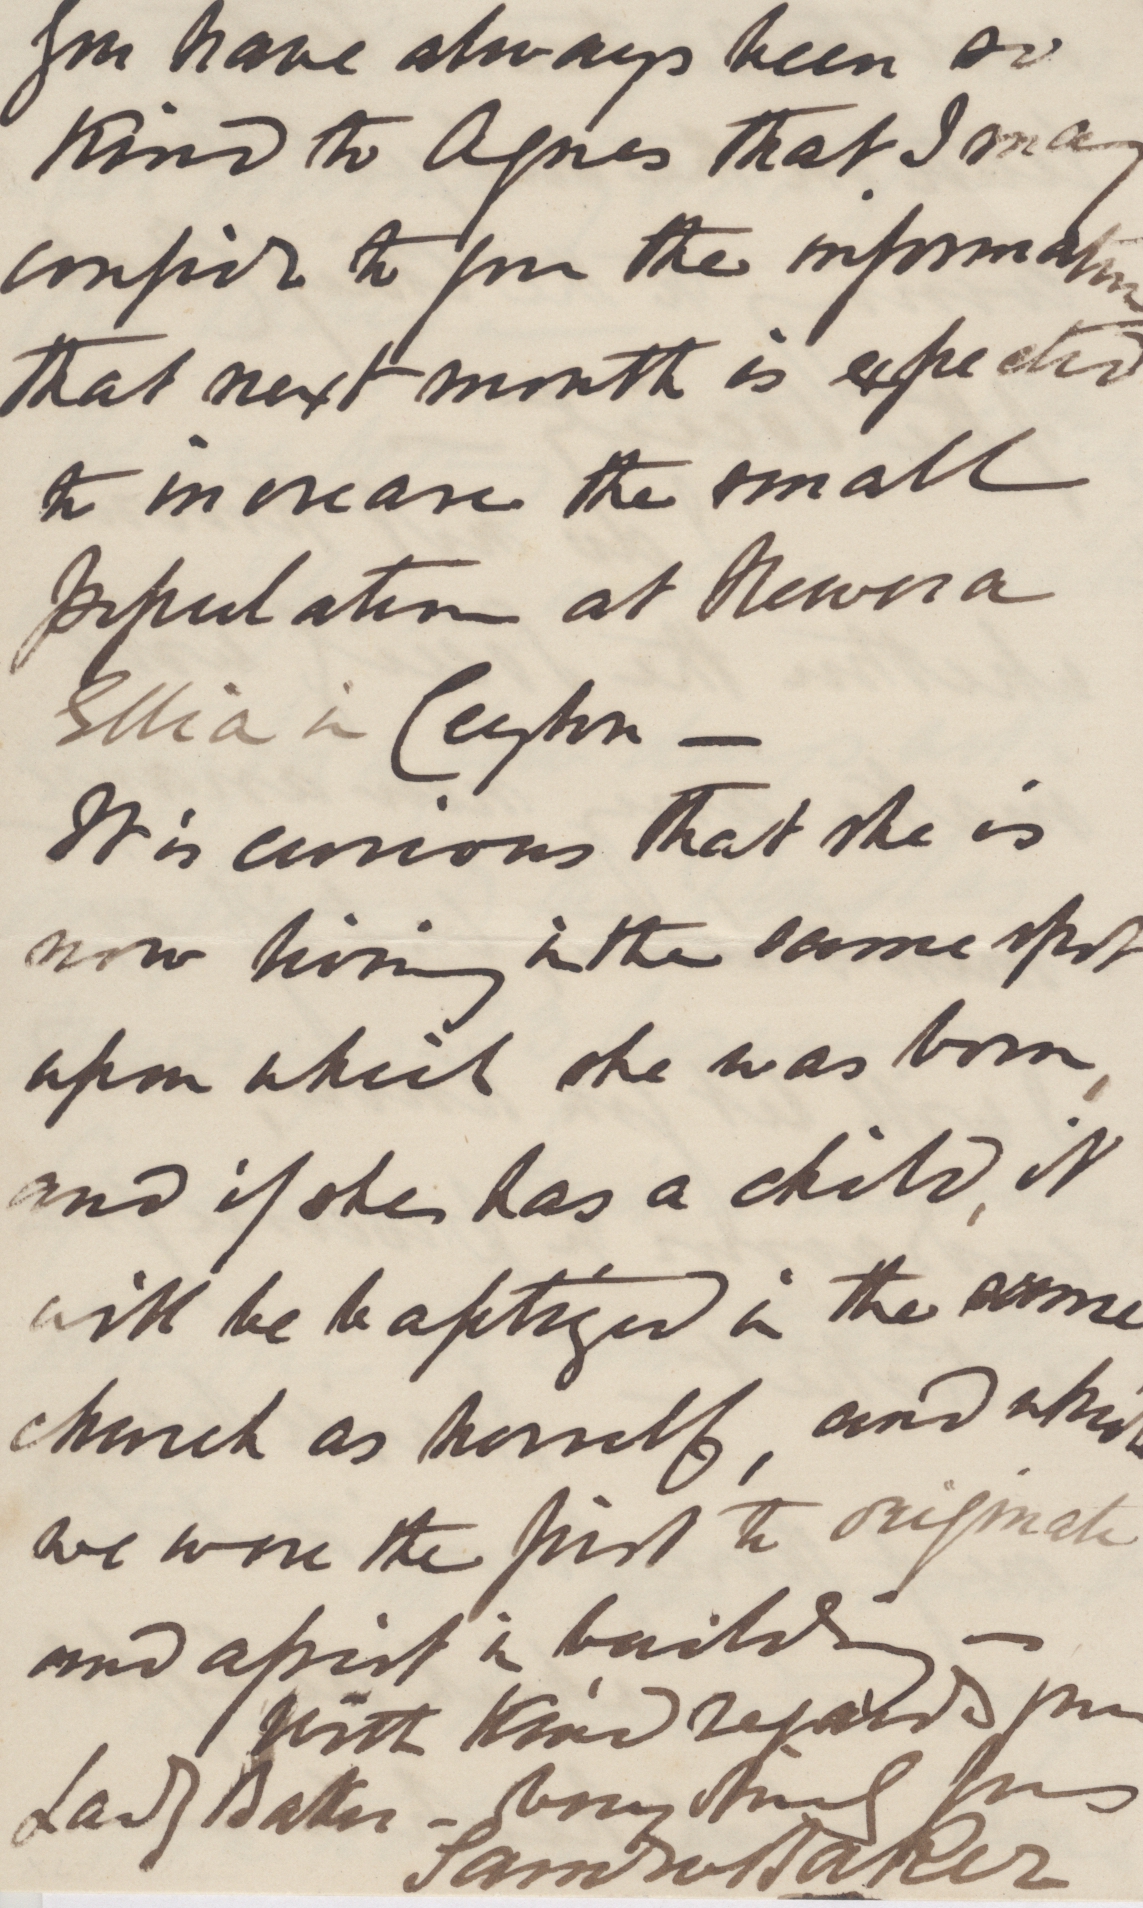 You have always been so
kind to Agnes that I may
confide to you the information
that next month is expected
to increase the small
population at Newera
Ellia in Ceylon —
It is curious that she is
now living in the same spot
upon which she was born,
and if she has a child, it
will be baptized in the same
church as herself, and which
we were the first to originate
and assist in building —
With kind regards from
Lady Baker - Very truly yours
Saml W Baker